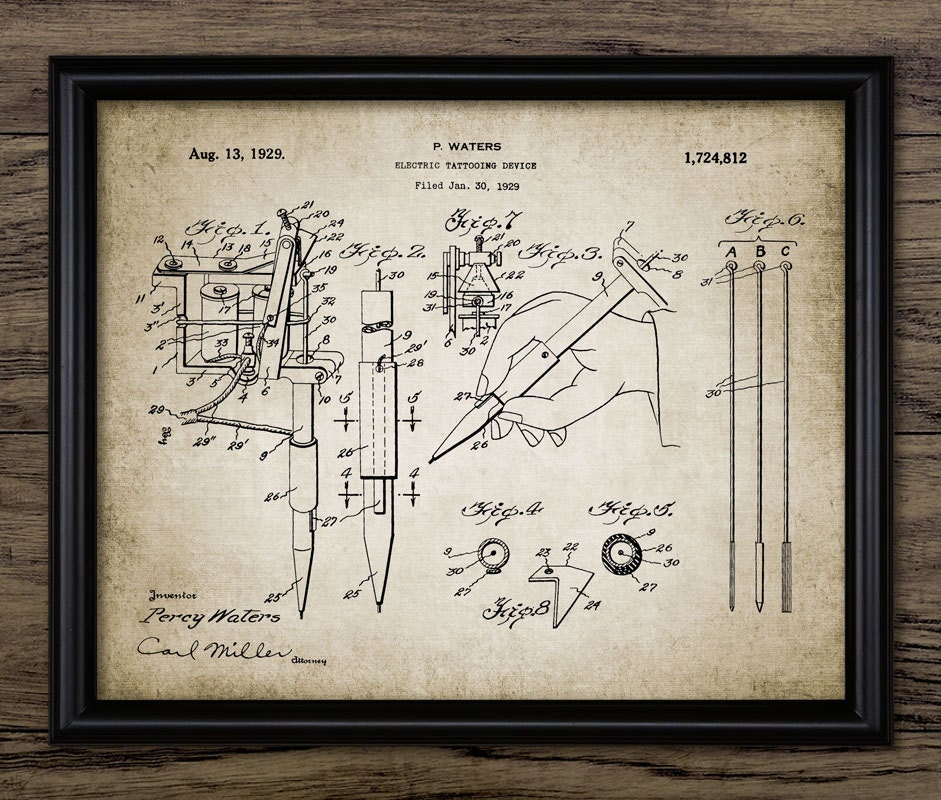 Aug. 13, 1929.
P. WATERS
1,724,812
ELECTRIC TATTOOING DEVICE
Filed Jan. 30, 1929
Fig. 1.
21
20
24
22
12
14
13
18
15
16
19
11
3'
17
35
32
3"
30
2
33
34
8
1
3
5
4
6
7
10
29
By
29"
29'
9
26
27
25
Fig. 2.
30
9
29'
28
5
5
26
4
4
27
25
Fig. 7
21
20
15
22
19
16
31
17
6
30
2
Fig. 3.
7
30
8
9
27
26
Fig. 6.
A B C
31
30
Fig. 4.
9
30
27
Fig. 5.
9
26
30
27
23
22
24
Fig 8
Inventor
Percy Waters
Carl Miller
Attorney